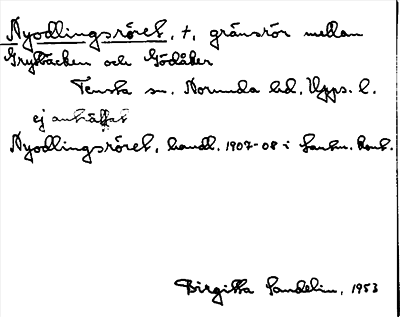 Nyodlingsröret, †, gränsrör mellan
Grytbäcken och Gödåker
Tensta sn. Norunda hd. Upps. l.
ej anträffat
Nyodlingsröret, handl. 1907-08 i Lantm. kont.
Birgitta Sandelin, 1953